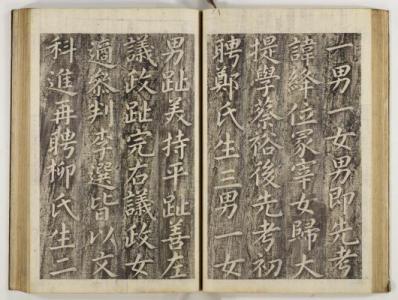 一男一女男即先考
諱絳位冢宰女歸大
提學蔡裕後先考初
聘鄭氏生三男一女
男趾美持平趾善左
議政趾完右議政女
適參判李選皆以文
科進再聘柳氏生二